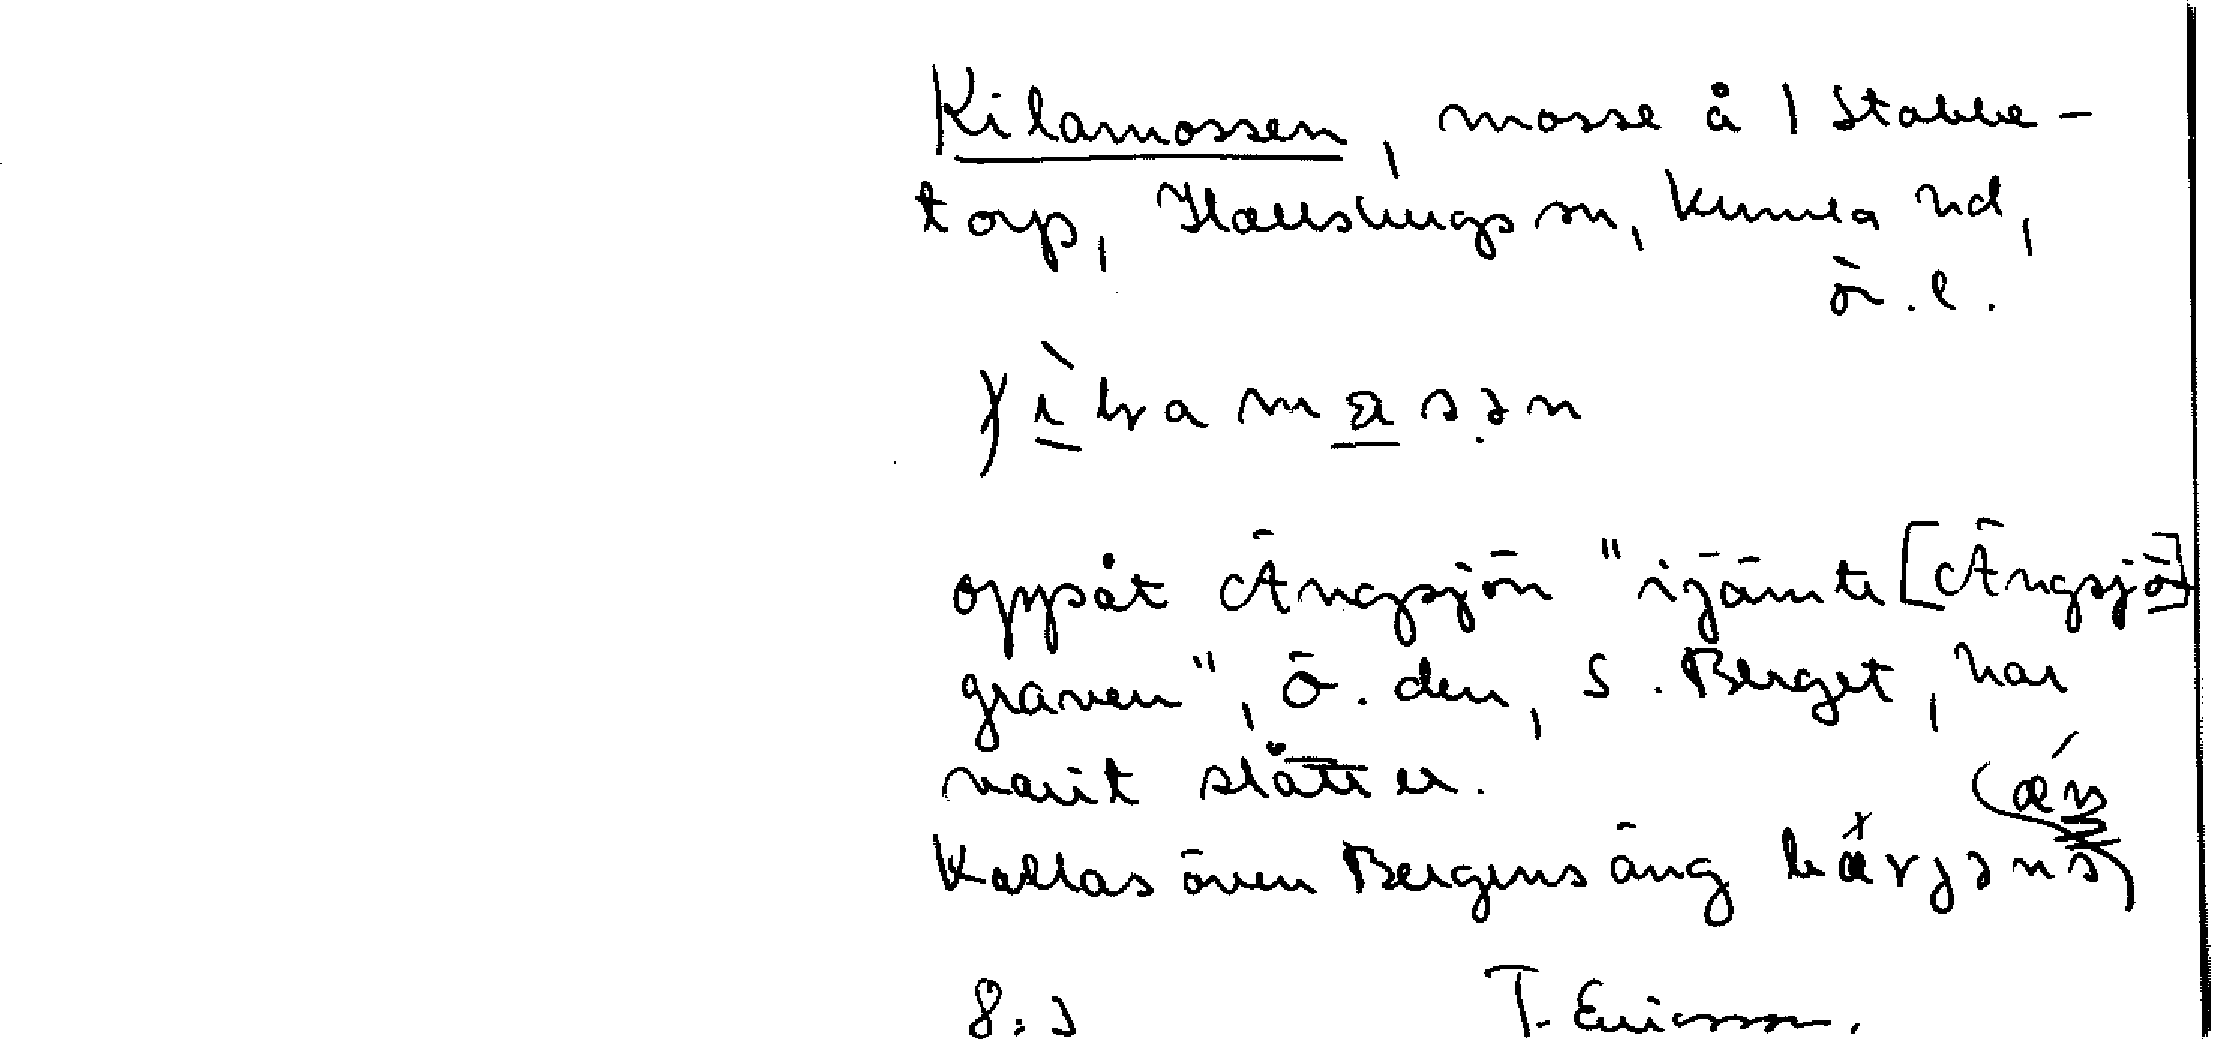 Kilamossen, mosse å 1 Stabbe-
torp, Hallsbergs sn, Kumla hd,
ö. l.
oppåt Ängsjön "ijämte [Ängsjö]
graven", Ö. den, S. Berget, har
varit slåtter.
Kallas även Bergensäng
8:3 T. Ericsson.